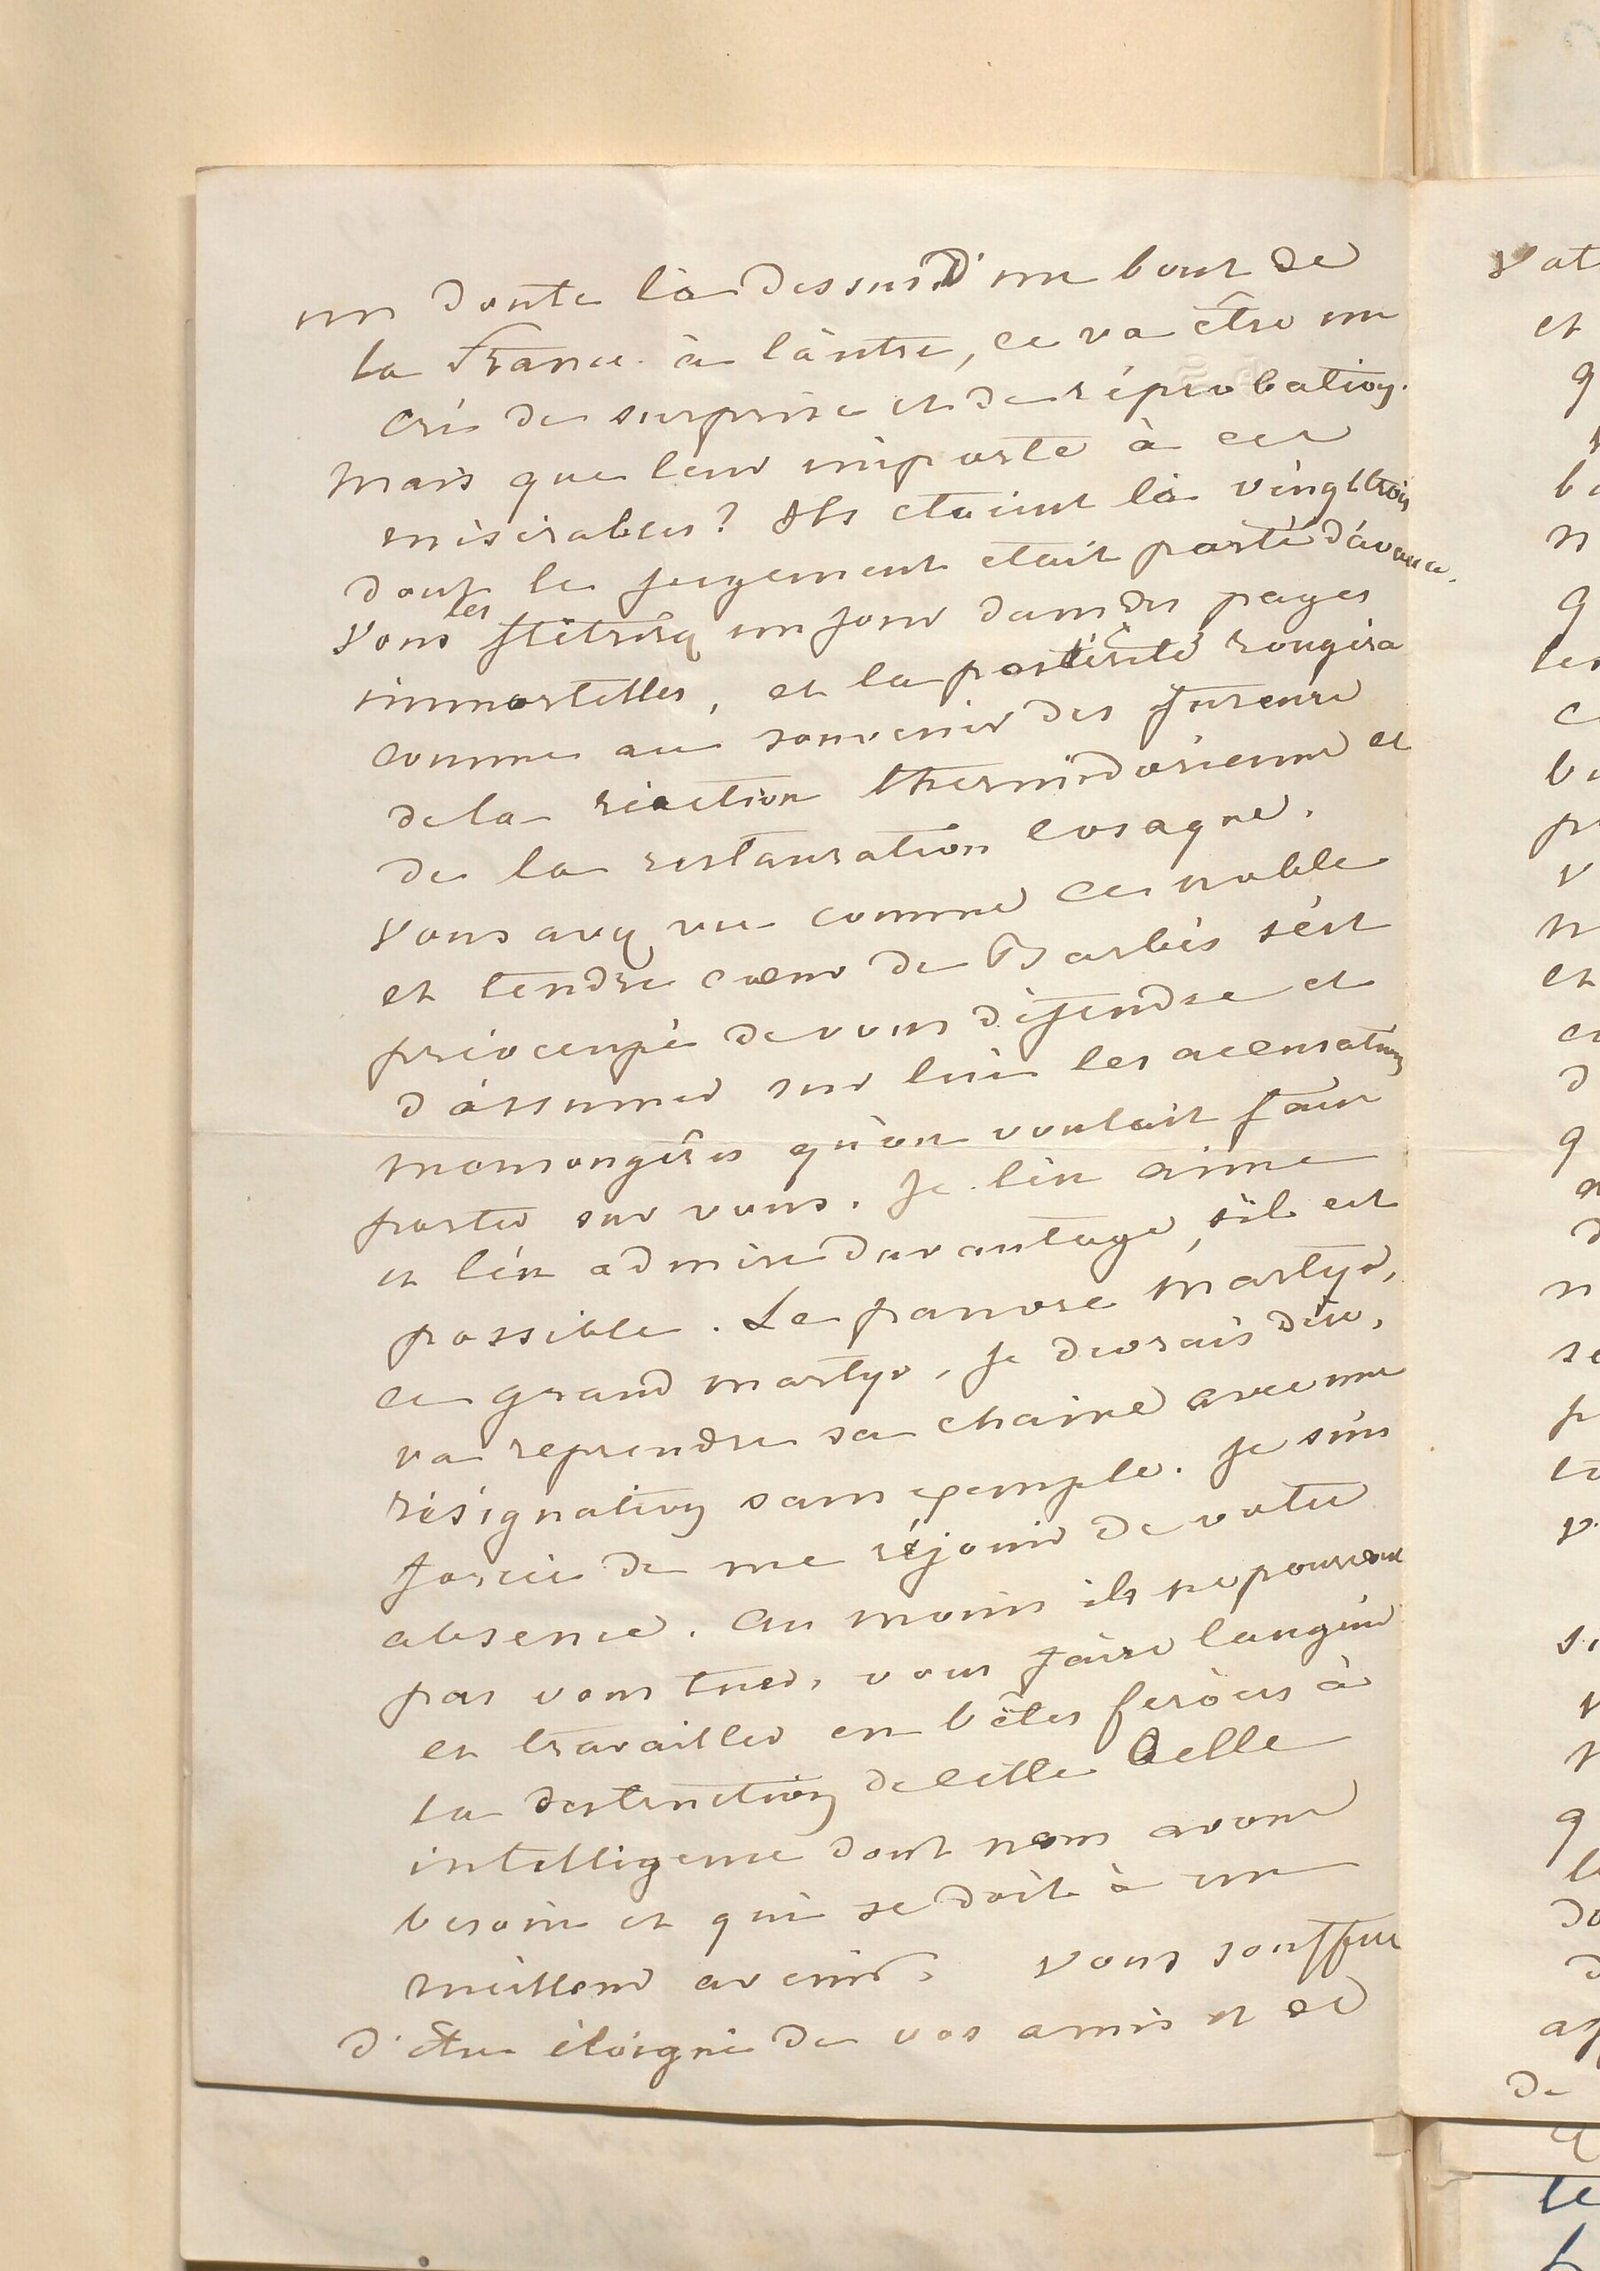 un doute là dessus. D'un bout de
la France à l'autre, ce va être un
cri de surprise et de réprobation.
Mais que leur importe à ces
misérables? Ils étaient là vingt trois
dont le jugement était porté d'avance.
Vous les flétrirez un jour dans des pages
immortelles, et la postérité rougira
comme au souvenir des fureurs
de la réaction thermidorienne et
de la restauration cosaque.
Vous avez vu comme ce noble
et tendre coeur de Barbès s'est
préoccupé de vous défendre et
d'assumer sur lui les accusations
mensongères qu'on voulait faire
porter sur vous. Je l'en aime
et l'en admire davantage, s'il est
possible. Le pauvre martyr,
ce grand martyr, je devrais dire,
va reprendre sa chaine avec une
résignation sans exemple. Je suis
forcée de me réjouir de votre
absence. Au moins ils ne pourront
pas vous tuer, vous faire languir
et travailler en bêtes féroces à
la destruction de cette belle
intelligence dont nous avons
besoin et qui se doit à un
meilleur avenir. Vous souffrez
d'être éloigné de vos amis et de